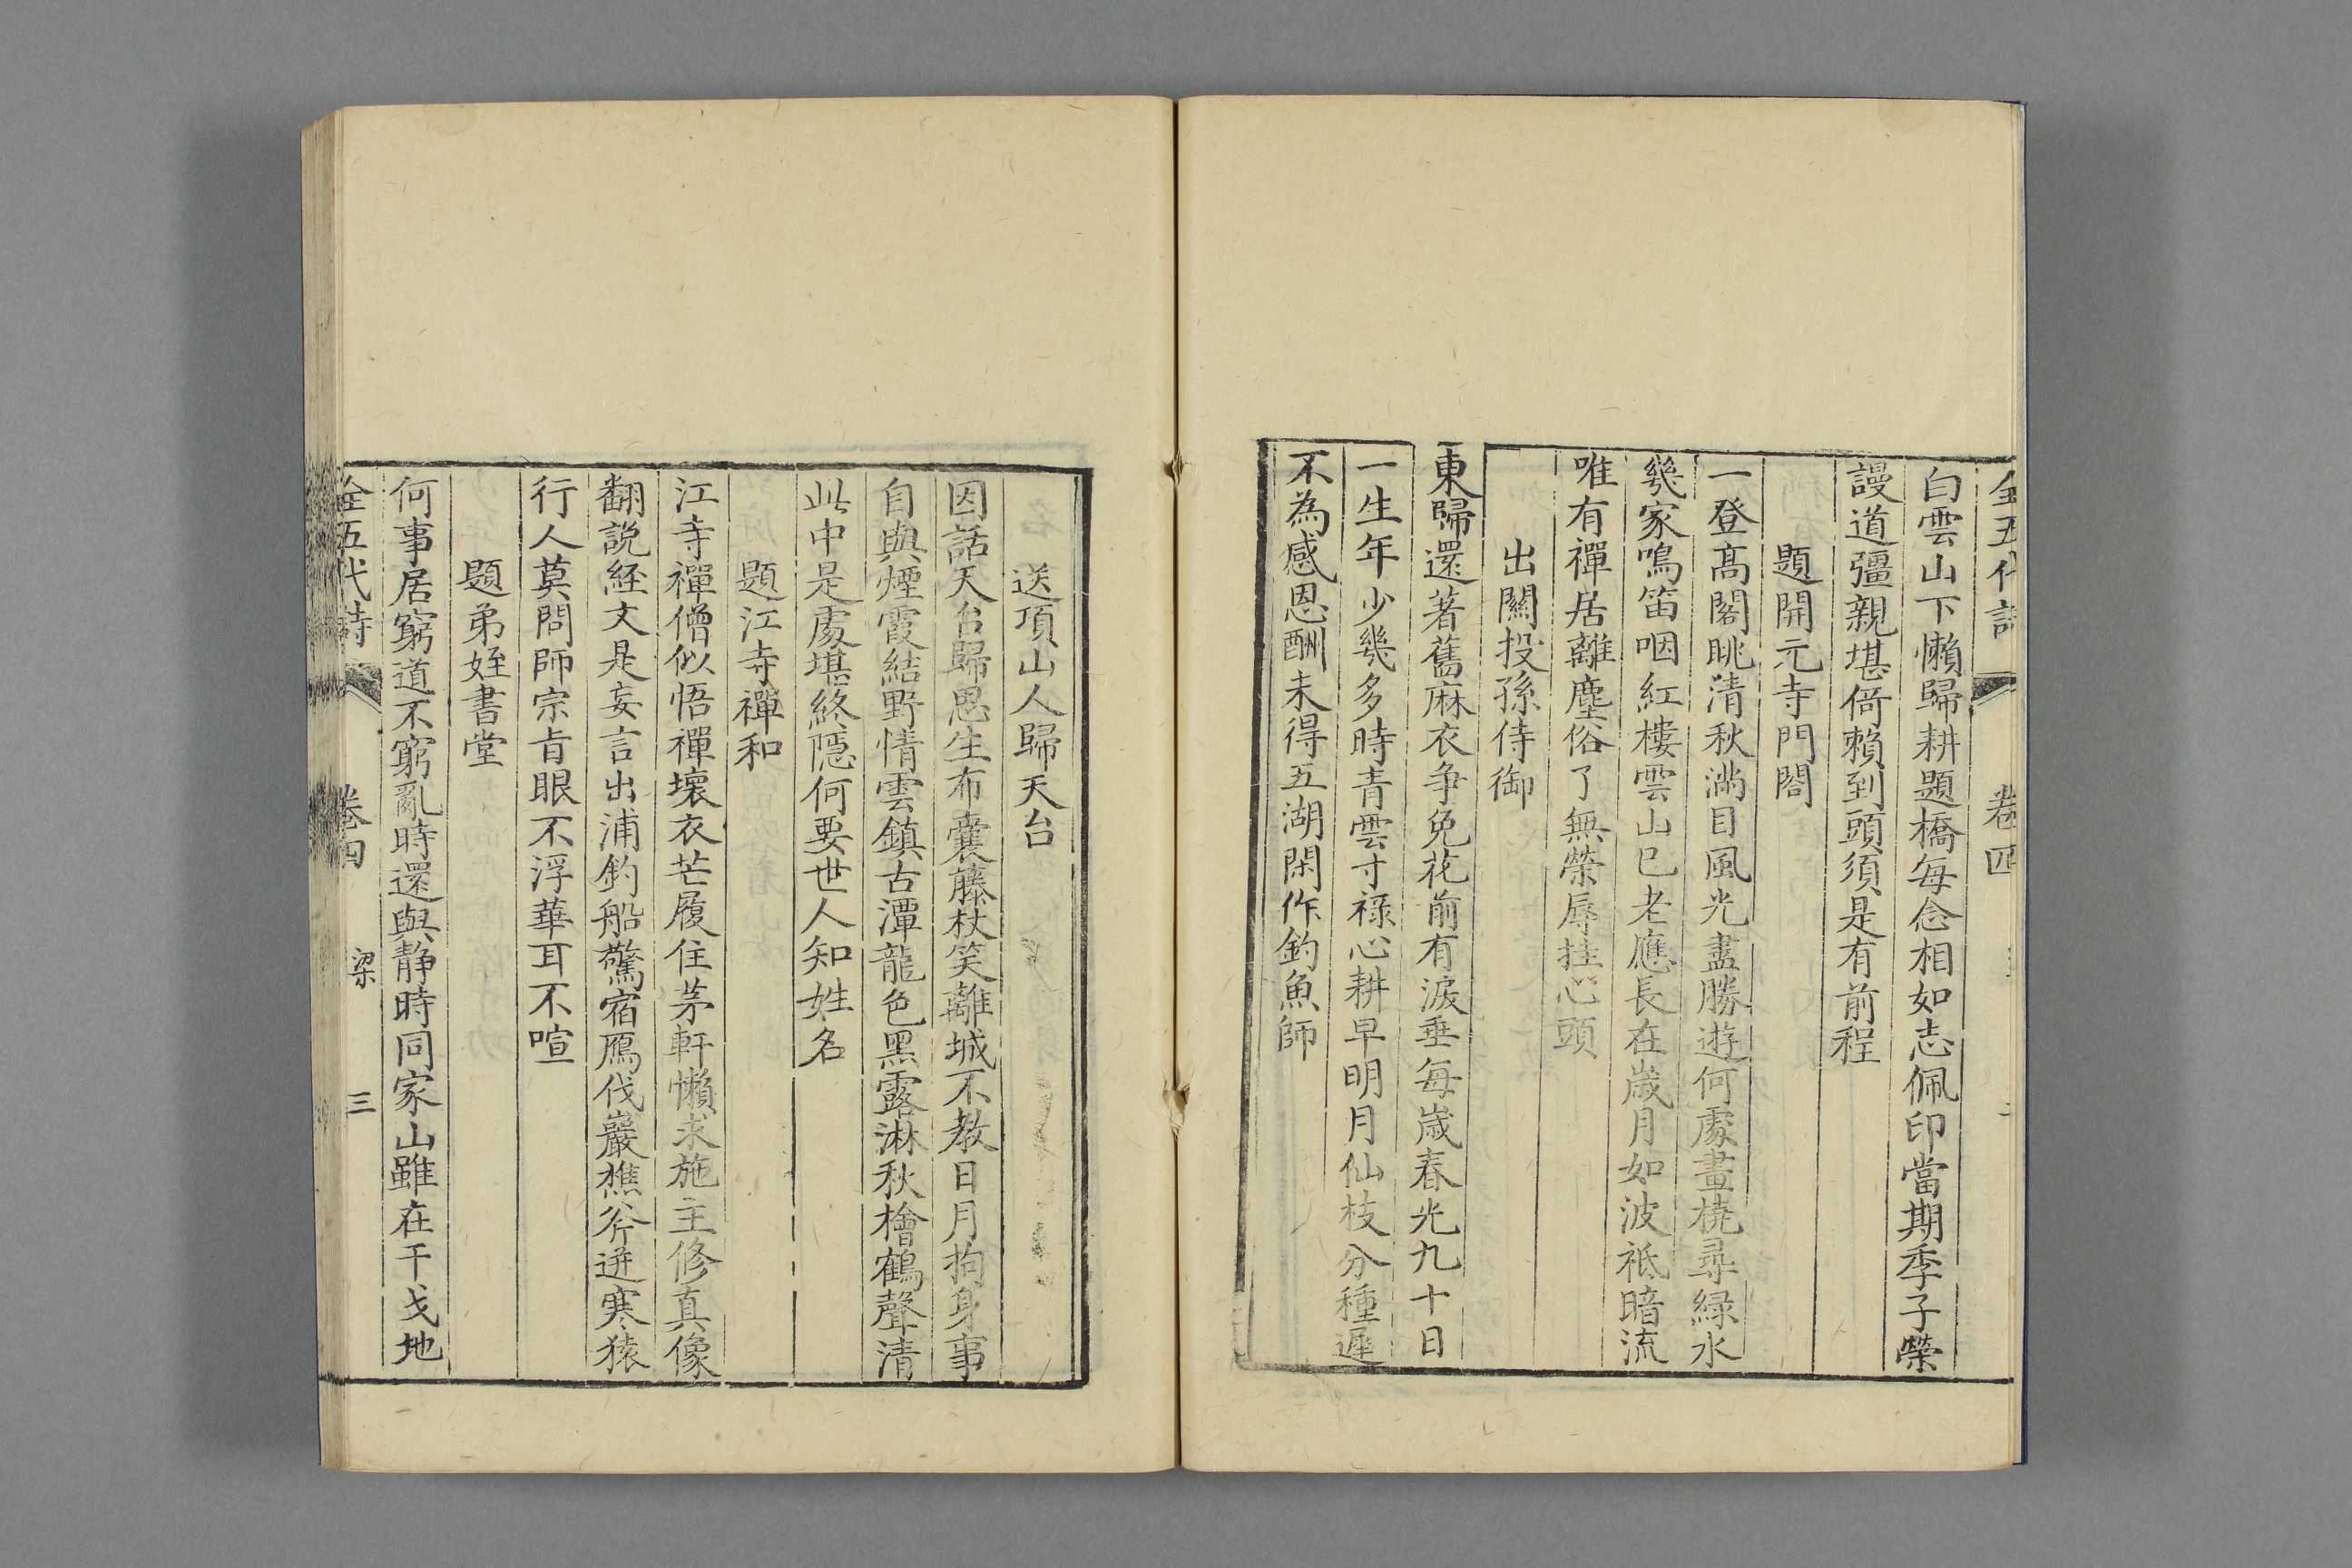 全五代詩 卷四
白雲山下懶歸耕題橋每念相如志佩印當期季子榮
謾道彊親堪倚賴到頭須是有前程
題開元寺門閣
一登高閣眺清秋滿目風光盡勝遊何處畫橈尋緑水
幾家鳴笛咽紅樓雲山巳老應長在歲月如波祗暗流
唯有禪居離塵俗了無榮辱挂心頭
出關投孫侍御
東歸還著舊麻衣爭免花前有淚垂每歲春光九十日
一生年少幾多時青雲寸祿心耕早明月仙枝分種遲
不為感恩酬未得五湖閑作釣魚師
送項山人歸天台
因話天台歸思生布囊藤杖笑離城不教日月拘身事
自與煙霞結野情雲鎮古潭龍色黑露淋秋檜鶴聲清
此中是處堪終隱何要世人知姓名
題江寺禪和
江寺禪僧似悟禪壞衣芒履住茅軒懶求施主修真像
翻說經文是妄言出浦釣船驚宿鴈伐巖樵斧迸寒猿
行人莫問師宗旨眼不浮華耳不喧
題弟姪書堂
何事居窮道不窮亂時還與靜時同家山雖在干戈地
全五代詩 卷四 梁 三